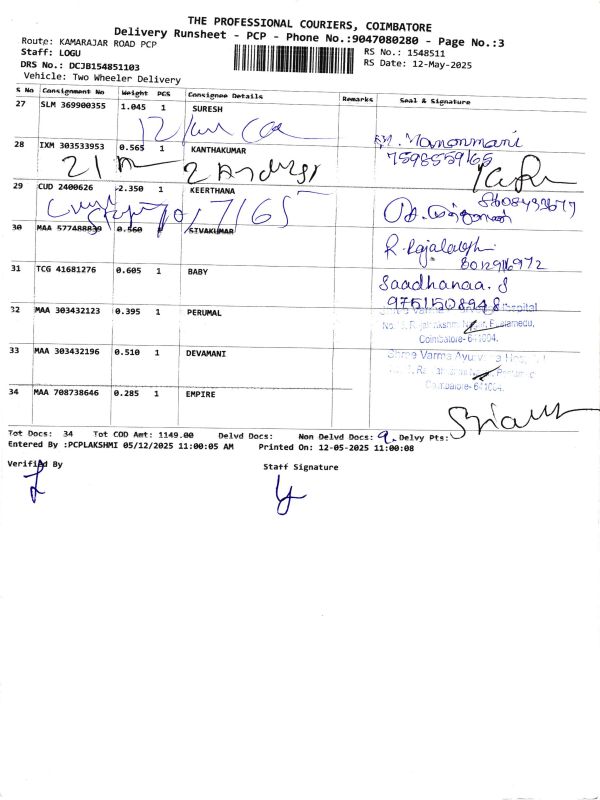 THE PROFESSIONAL COURIERS, COIMBATORE
Delivery Runsheet - PCP - Phone No.:9047080280 - Page No.:3
Route: KAMARAJAR ROAD PCP
Staff: LOGU
RS No.: 1548511
DRS No.: DCJB154851103
RS Date: 12-May-2025
Vehicle: Two Wheeler Delivery
S No Consignment No Weight PCS Consignee Details Remarks Seal & Signature
27 SLM 369900355 1.045 1 SURESH
M. Manonmani
28 IXM 303533953 0.565 1 KANTHAKUMAR
7598559165
29 CUD 2400626 2.350 1 KEERTHANA
30 MAA 577488839 0.560 SIVAKUMAR
R. Rajalakshmi
8012916972
31 TCG 41681276 0.605 1 BABY
Saadhanaa. S
9751508948
32 MAA 303432123 0.395 1 PERUMAL
Coimbatore- 641004.
33 MAA 303432196 0.510 1 DEVAMANI
Shree Varma Ayurveda
Coimbatore- 641004.
34 MAA 708738646 0.285 1 EMPIRE
Tot Docs: 34 Tot COD Amt: 1149.00 Delvd Docs: Non Delvd Docs: 9. Delvy Pts:
Entered By :PCPLAKSHMI 05/12/2025 11:00:05 AM Printed On: 12-05-2025 11:00:08
Verified By
Staff Signature